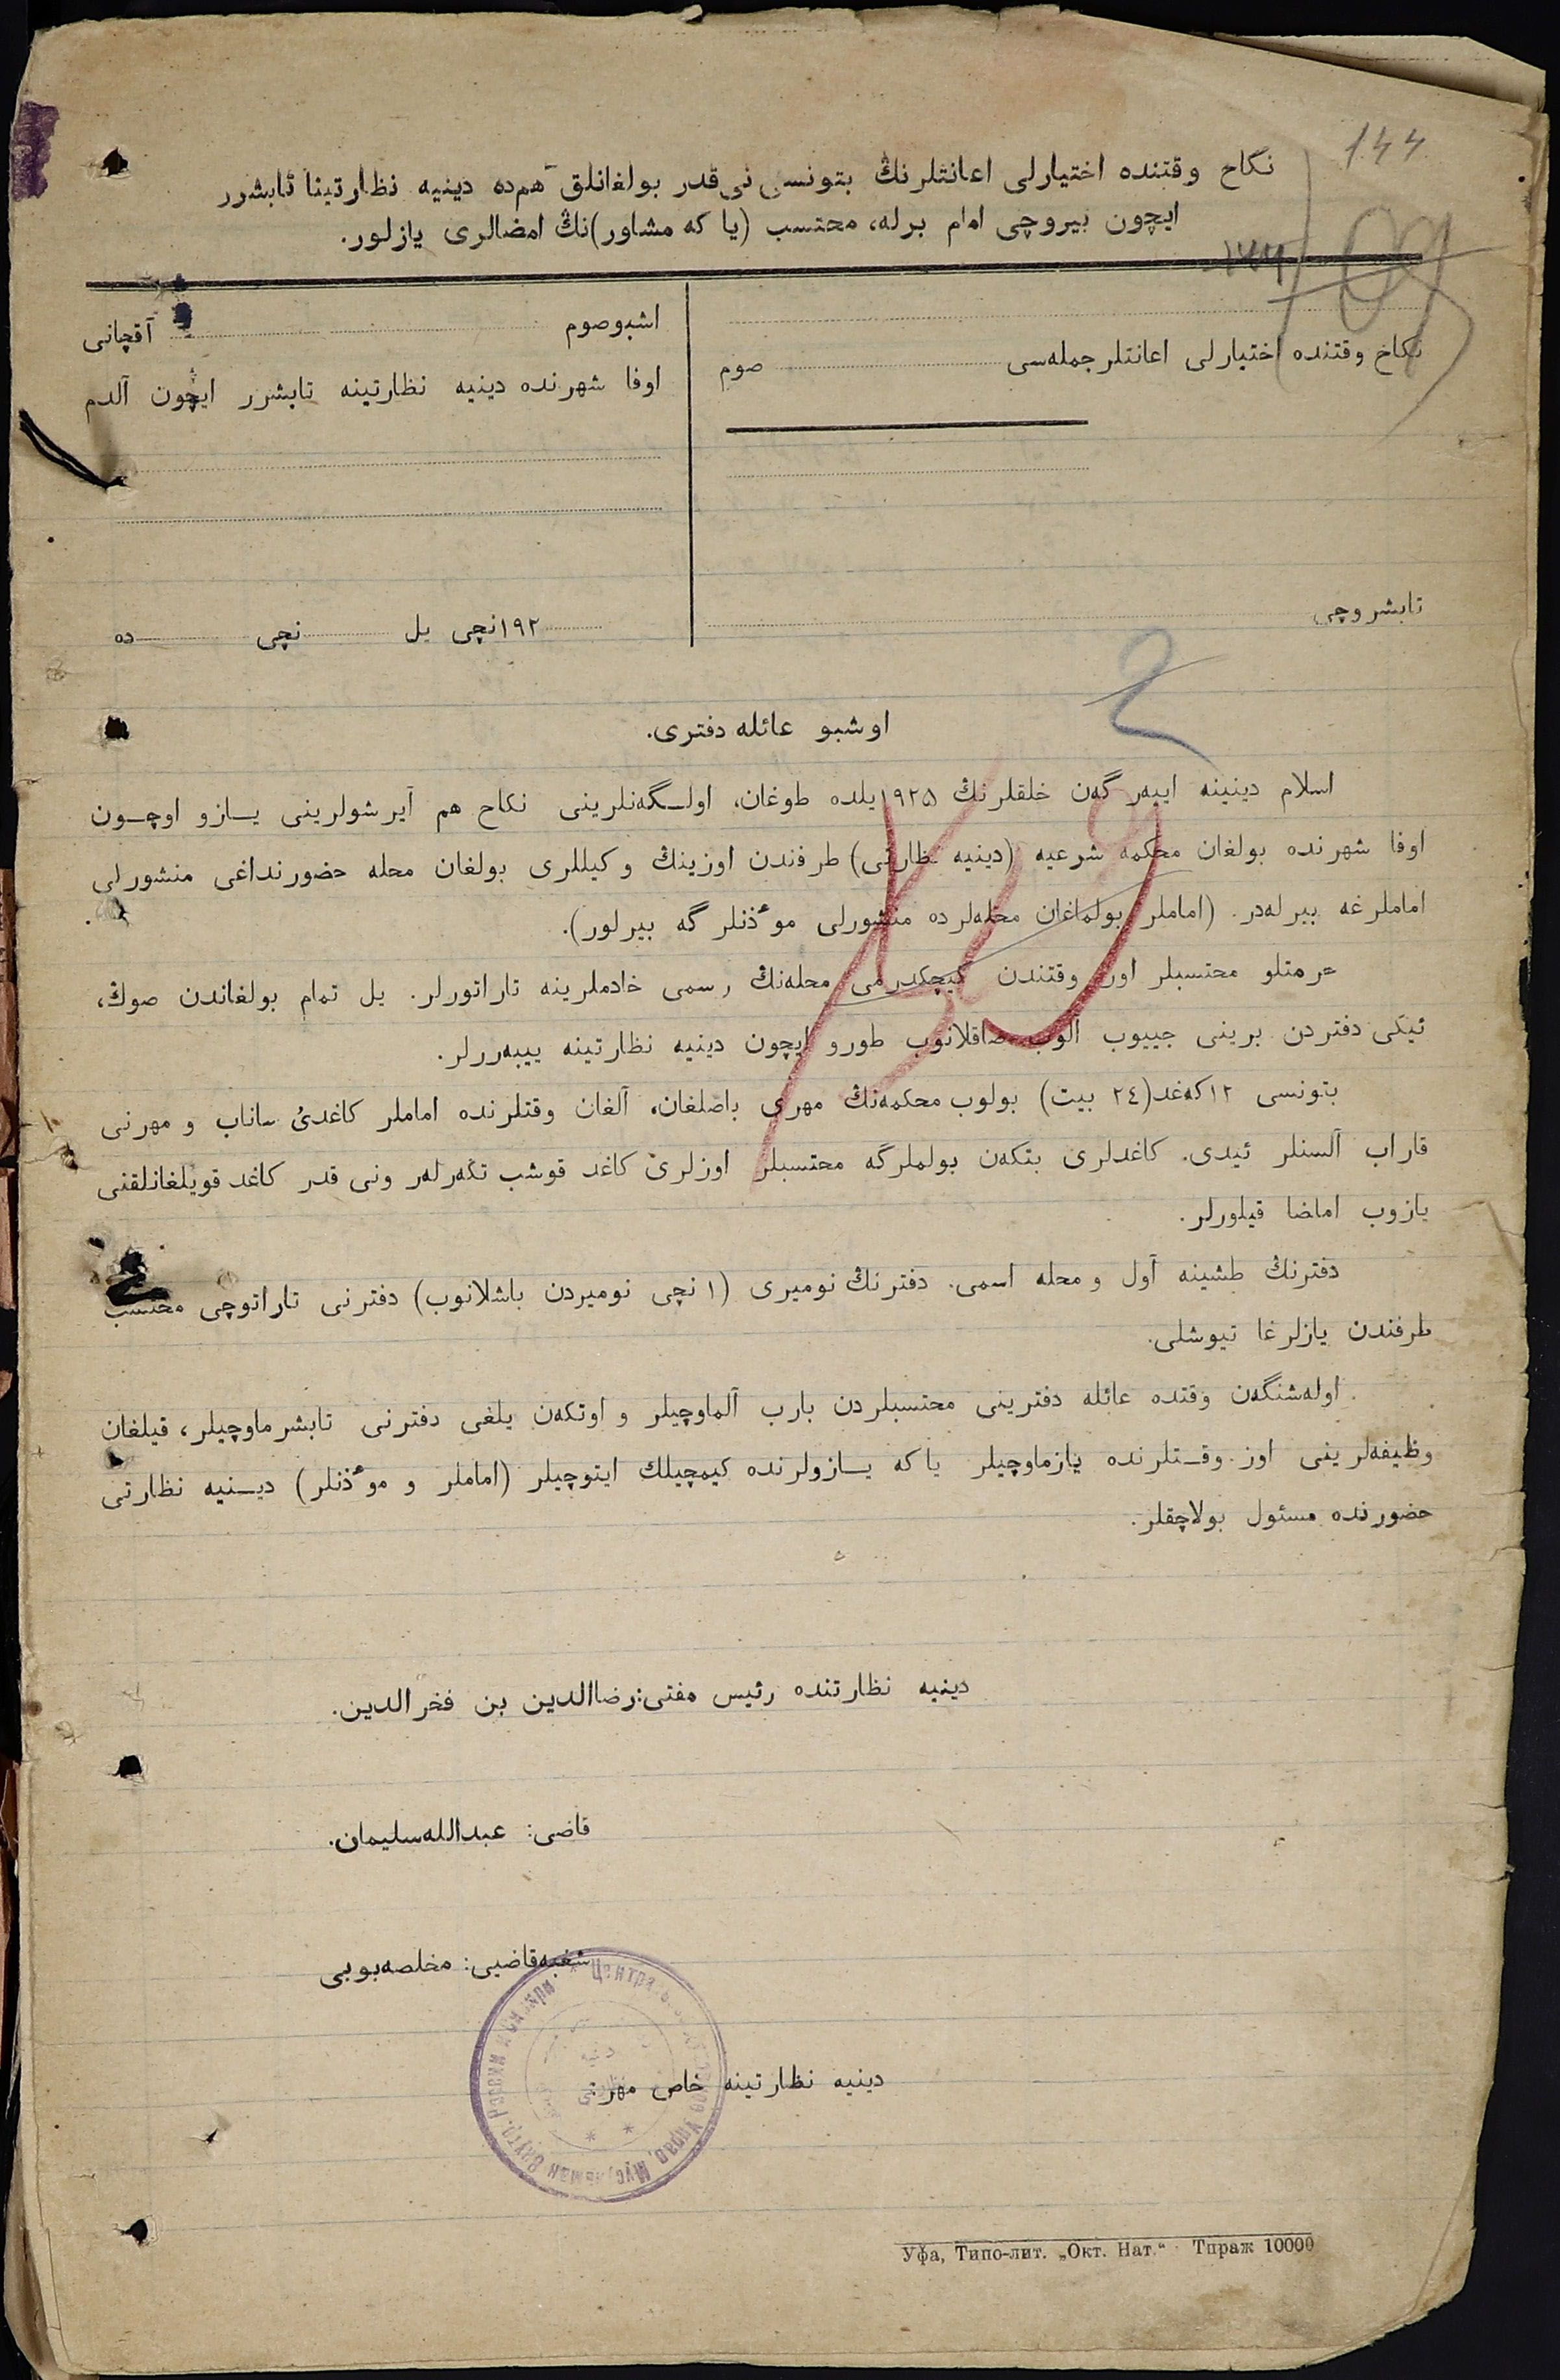 144
نكاح وقتنده اختيارلى اعانتلرنڭ بتونسى نى قدر بولغانلق هم‌ده دينيه نظارتينا ئابشرر
ايچون بيروچى امام برله، محتسب (يا كه مشاور)نڭ امضالرى يازلور.
نكاخ وقتنده اختيارلى اعانتلر جمله‌سى صوم
تابشروچى
اشبو صوم آقچانى
اوفا شهرنده دينيه نظارتينه تابشرر ايچون آلدم
۱۹۲ نچى يل نچى ده
2
اوشبو عائله دفترى.
اسلام دينينه اييه‌رگه‌ن خلقلرنڭ ۱۹۲۵ يلده طوغان، اولـگه‌نلرينى نكاح هم آيرشولرينى يـازو اوچـون
اوفا شهرنده بولغان محكمه شرعيه (دينيه نظارتى) طرفندن اوزينڭ وكيللرى بولغان محله حضورنداغى منشورلى
اماملرغه بيرله‌در. (اماملر بولماغان محله‌لرده منشورلى موءذنلرگه بيرلور).
حرمتلو محتسبلر اوز وقتندن كيچكدرمى محله‌نڭ رسمى خادملرينه تاراتورلر. يل تمام بولغاندن صوڭ،
ئيكى دفتردن برينى جييوب آلوب صاقلانوب طورو ايچون دينيه نظارتينه ييبه‌ررلر.
بتونسى ۱۲ كه‌غد (۲٤ بيت) بولوب محكمه‌نڭ مهرى باصلغان، آلغان وقتلرنده اماملر كاغدىٔ ساناب و مهرنى
قاراب آلسنلر ئيدى. كاغدلرى بتكه‌ن بولملرگه محتسبلر اوزلرى كاغد قوشب تگه‌رله‌ر ونى قدر كاغد قويلغانلقنى
يازوب اماضا قيلورلر.
دفترنڭ طشينه آول و محله اسمى. دفترنڭ نوميرى (۱ نچى نوميردن باشلانوب) دفترنى تاراتوچى محتسب
طرفندن يازلرغا تيوشلى.
اوله‌شنگه‌ن وقتده عائله دفترينى محتسبلردن بارب آلماوچيلر و اوتكه‌ن يلغى دفترنى تابشرماوچيلر، قيلغان
وظيفه‌لرينى اوز وقـتلرنده يازماوچيلر ياكه يـازولرنده كيمچيلك ايتوچيلر (اماملر و موءذنلر) ديـنيه نظارتى
حضورنده مسئول بولاچقلر.
دينيه نظارتنده رئيس مفتى: رضاالدين بن فخرالدين.
قاضى: عبدالله سليمان.
شعبه قاضيى: مخلصه بوبى
دينيه نظارتينه خاص مهر:
Уфа, Типо-лит. „Окт. Нат.“ Тираж 10000